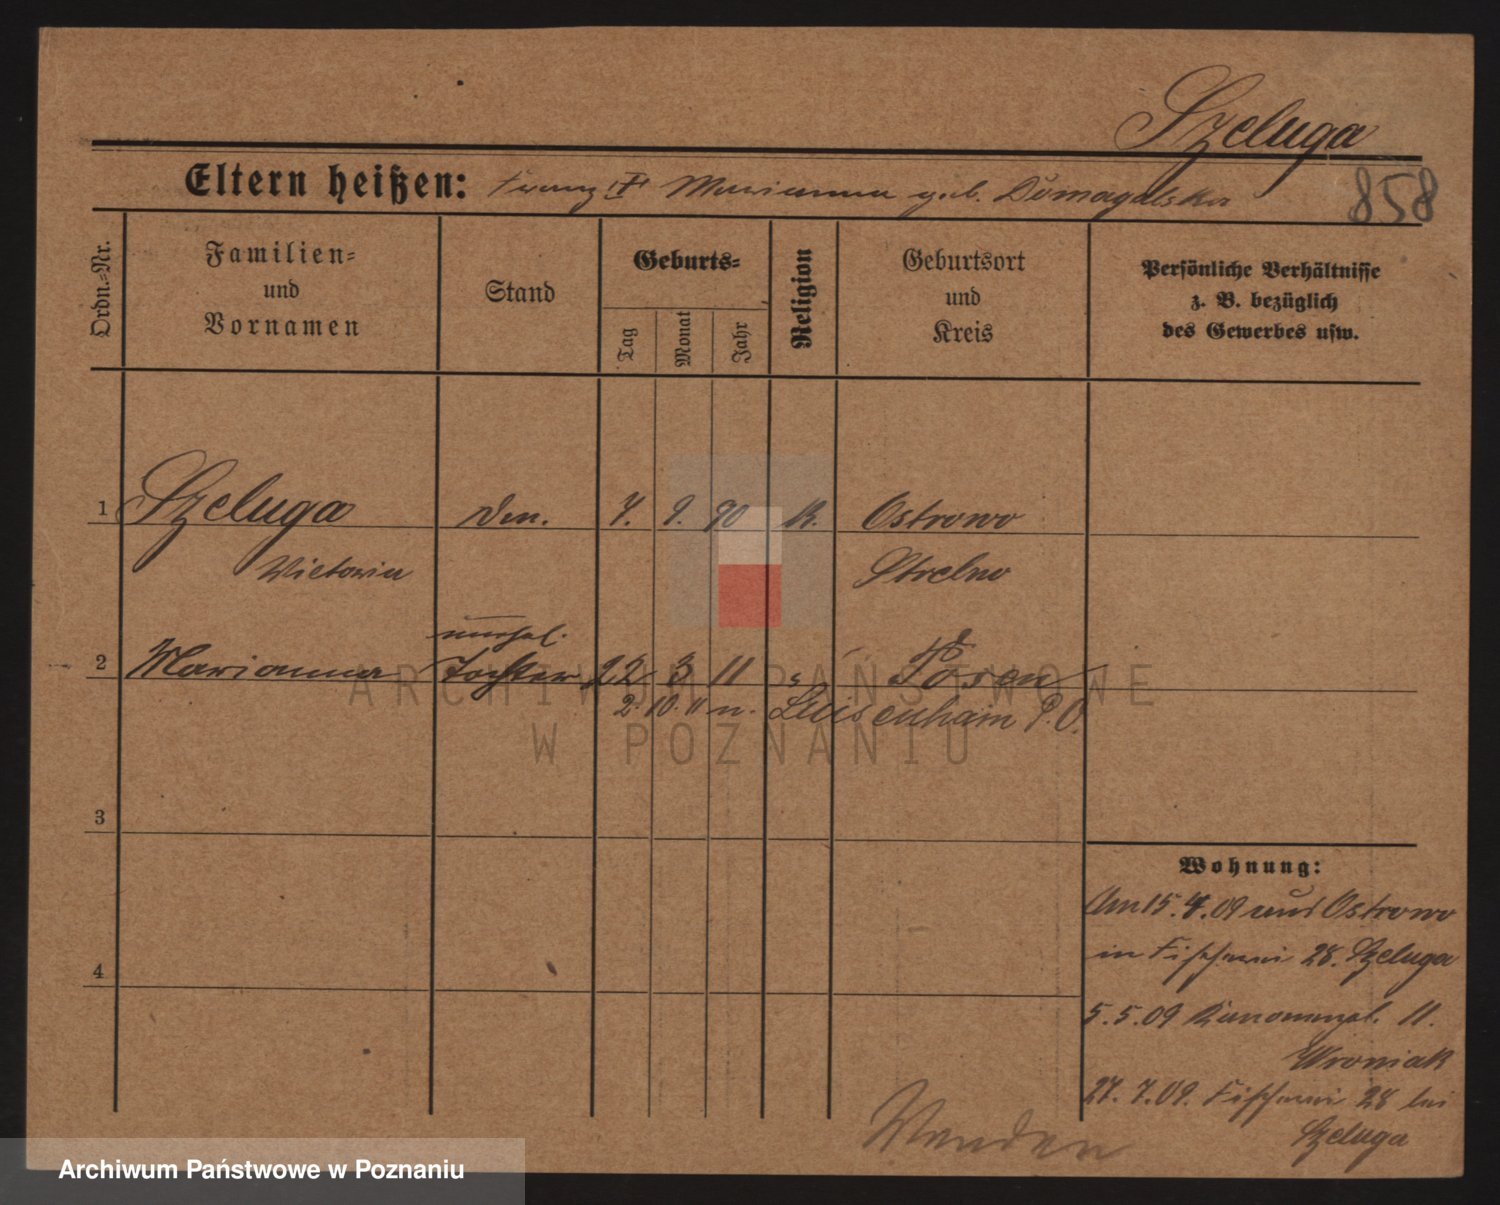 Szeluga
Eltern heißen: Franz Marianna geb. Domagalska
858
Ordn.-Nr.
Familien-
und
Vornamen
Stand
Geburts-
Tag
Monat
Jahr
Religion
Geburtsort
und
Kreis
Persönliche Verhältnisse
z. B. bezüglich
des Gewerbes usw.
1 Szeluga 9. 90 K. Ostrowo
Victoria Strelno
unehel.
2 Marianna Tochter 22 3 11 Posen
2. 10. 11 n. Luisenhain P. O.
3
4
Wohnung:
Am 15. 4. 09 aus Ostrowo
in Fischerei 28. Szeluga
5. 5. 09 11.
Wroniak
27. 7. 09. Fischerei 28 bei
Szeluga
Wenden
ARCHIWUM PAŃSTWOWE
W POZNANIU
Archiwum Państwowe w Poznaniu